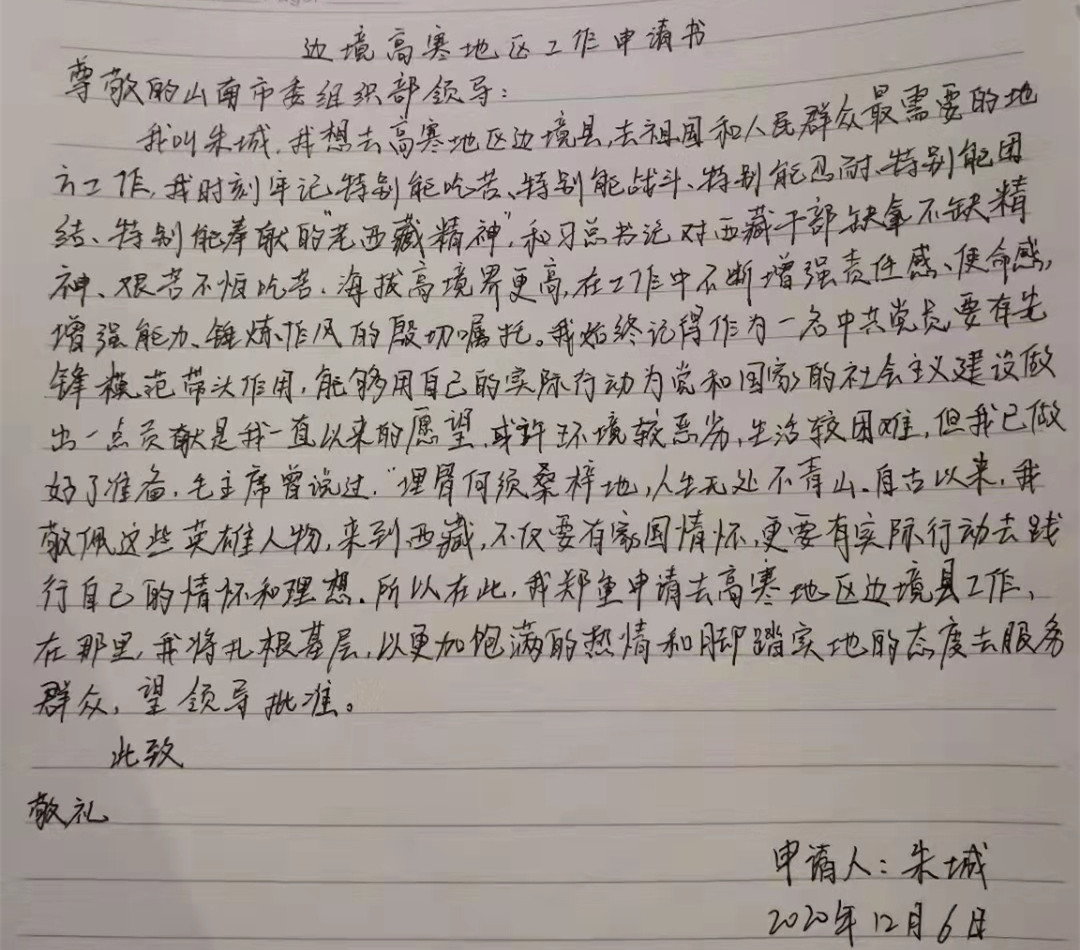 边境高寒地区工作申请书
尊敬的山南市委组织部领导:
我叫朱城,我想去高寒地区边境县,去祖国和人民群众最需要的地
方工作,我时刻牢记特别能吃苦、特别能战斗、特别能忍耐、特别能团
结、特别能奉献的"老西藏精神",和习总书记对西藏干部缺氧不缺精
神、艰苦不怕吃苦、海拔高境界更高,在工作中不断增强责任感、使命感,
增强能力、锤炼作风的殷切嘱托。我始终记得作为一名中共党员要有先
锋模范带头作用,能够用自己的实际行动为党和国家的社会主义建设做
出一点贡献是我一直以来的愿望,或许环境较恶劣,生活较困难,但我已做
好了准备,毛主席曾说过,"埋骨何须桑梓地,人生无处不青山,自古以来,我
敬佩这些英雄人物,来到西藏,不仅要有家国情怀,更要有实际行动去践
行自己的情怀和理想,所以在此,我郑重申请去高寒地区边境县工作,
在那里,我将扎根基层,以更加饱满的热情和脚踏实地的态度去服务
群众,望领导批准。
此致
敬礼
申请人:朱城
2020年12月6日